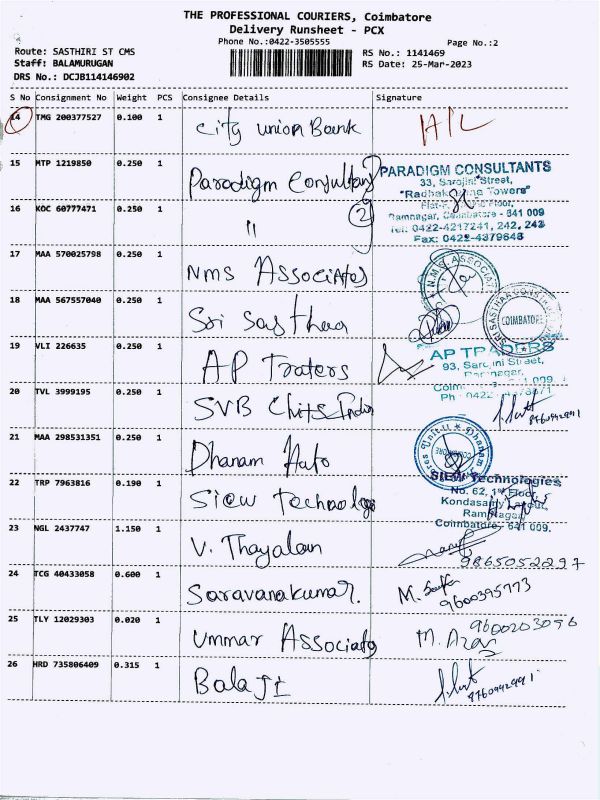 THE PROFESSIONAL COURIERS, Coimbatore
Delivery Runsheet - PCX
Phone No.:0422-3505555
Page No.:2
Route: SASTHIRI ST CMS
Staff: BALAMURUGAN
DRS No.: DCJB114146902
RS No.: 1141469
RS Date: 25-Mar-2023
S No Consignment No Weight PCS Consignee Details Signature
14 TMG 200377527 0.100 1 City Union Bank
15 MTP 1219850 0.250 1 Paradigm Consultany
PARADIGM CONSULTANTS
33, Sarojini Street,
"Radhakrishna Towers"
Floor,
Ramnagar, Coimbatore - 641 009
Tel: 0422-4217241, 242, 243
Fax: 0422-4379643
16 KOC 60777471 0.250 1 " 2
17 MAA 570025798 0.250 1 NMS Associates
N.M.S. ASSOCIATES
18 MAA 567557040 0.250 1 Sri Sasthaa
SRI SASTHAA
COIMBATORE
19 VLI 226635 0.250 1 AP Traters
AP TRADERS
93, Sarojini Street,
Ramnagar,
20 TVL 3999195 0.250 1 SVB Chits India
9760942991
21 MAA 298531351 0.250 1 Dhanam Auto
Dhanam
22 TRP 7963816 0.190 1 Siew Technology
SIEW Technologies
No. 62, 1st Floor,
Kondasamy Layout,
Ramnagar,
Coimbatore - 641 009.
23 NGL 2437747 1.150 1 V. Thayalan
9865052297
24 TCG 40433058 0.600 1 Saravanakumar.
M.
9600395773
25 TLY 12029303 0.020 1 Ummar Associats
9600203096
M. Azar
26 HRD 735806409 0.315 1 Balaji
9760942991